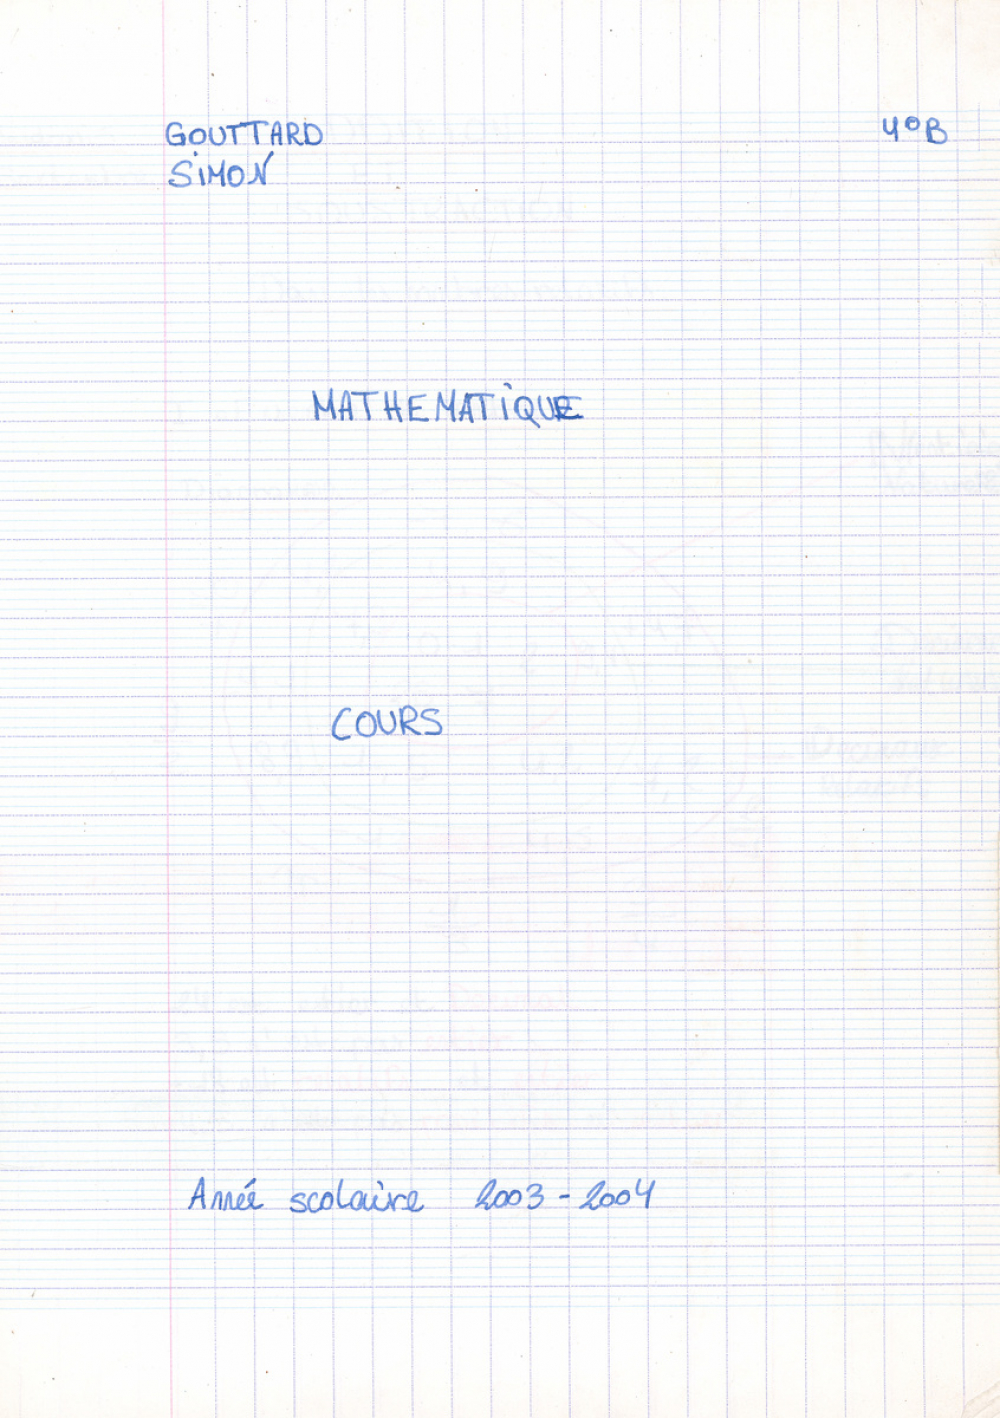 GOUTTARD 4°B
SIMON
MATHEMATIQUE
COURS
Année scolaire 2003-2004